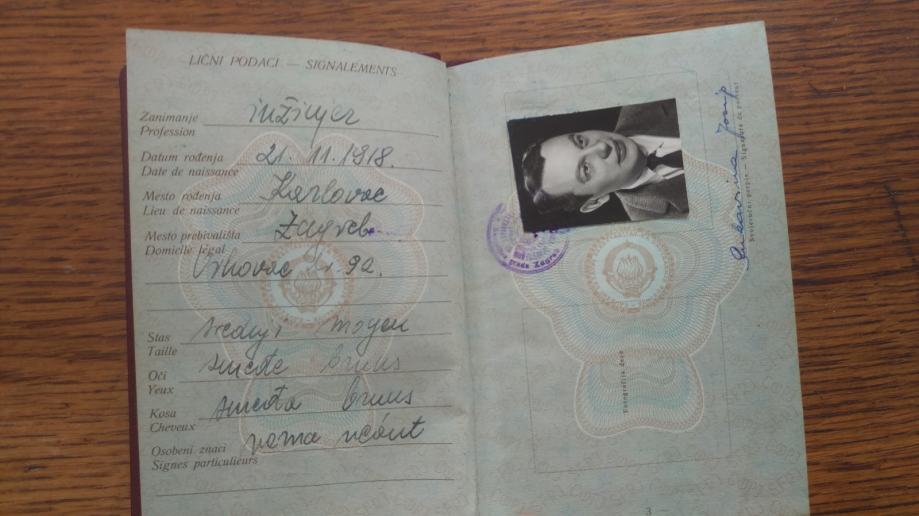 LIČNI PODACI — SIGNALEMENTS
Zanimanje inžinjer
Profession
Datum rođenja 21. 11. 1918.
Date de naissance
Mesto rođenja Karlovac
Lieu de naissance
Mesto prebivališta Zagreb
Domicile légal
Vrhovac br. 9a.
Stas srednji moyen
Taille
Oči smeđe bruns
Yeux
Kosa smeđa bruns
Cheveux
Osobeni znaci nema néant
Signes particulieurs
Josip
Svojeručni potpis — Signature du porteur
grada Zagre
Fotografija dece
3